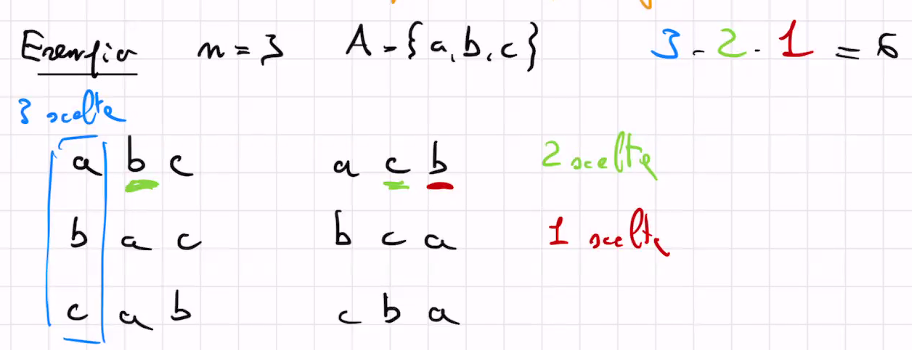 Esempio n = 3 A = {a, b, c} 3 · 2 · 1 = 6
3 scelte
a b c a c b 2 scelte
b a c b c a 1 scelte
c a b c b a